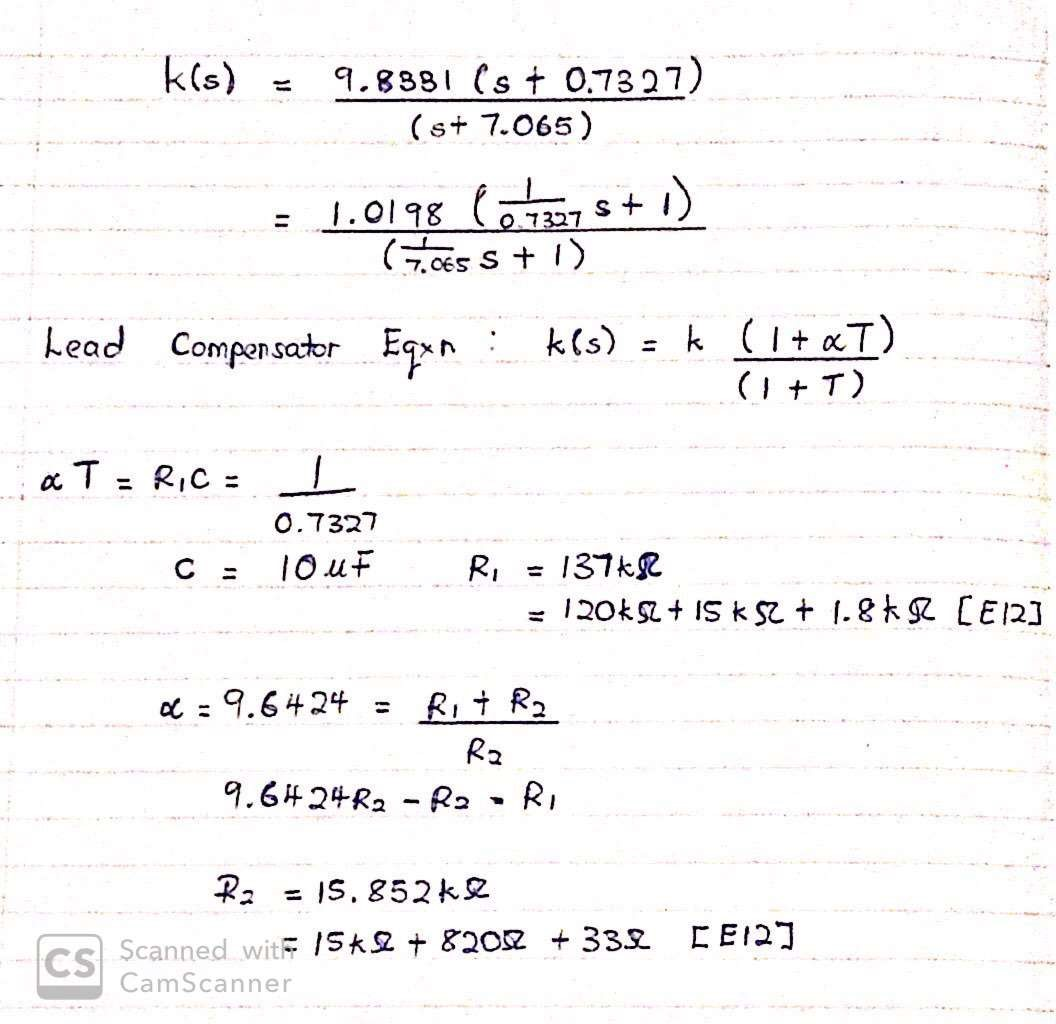 k(s) = 9.8331 (s + 0.7327)
(s + 7.065)
= 1.0198 (1/0.7327 s + 1)
(1/7.065 s + 1)
Lead Compensator Eqxn : k(s) = k (1 + αT)
(1 + T)
αT = R₁C = 1
0.7327
C = 10 uF R₁ = 137kΩ
= 120kΩ + 15 kΩ + 1.8kΩ [E12]
α = 9.6424 = R₁ + R₂
R₂
9.6424R₂ - R₂ = R₁
R₂ = 15.852kΩ
= 15kΩ + 820Ω + 33Ω [E12]
CS Scanned with
CamScanner